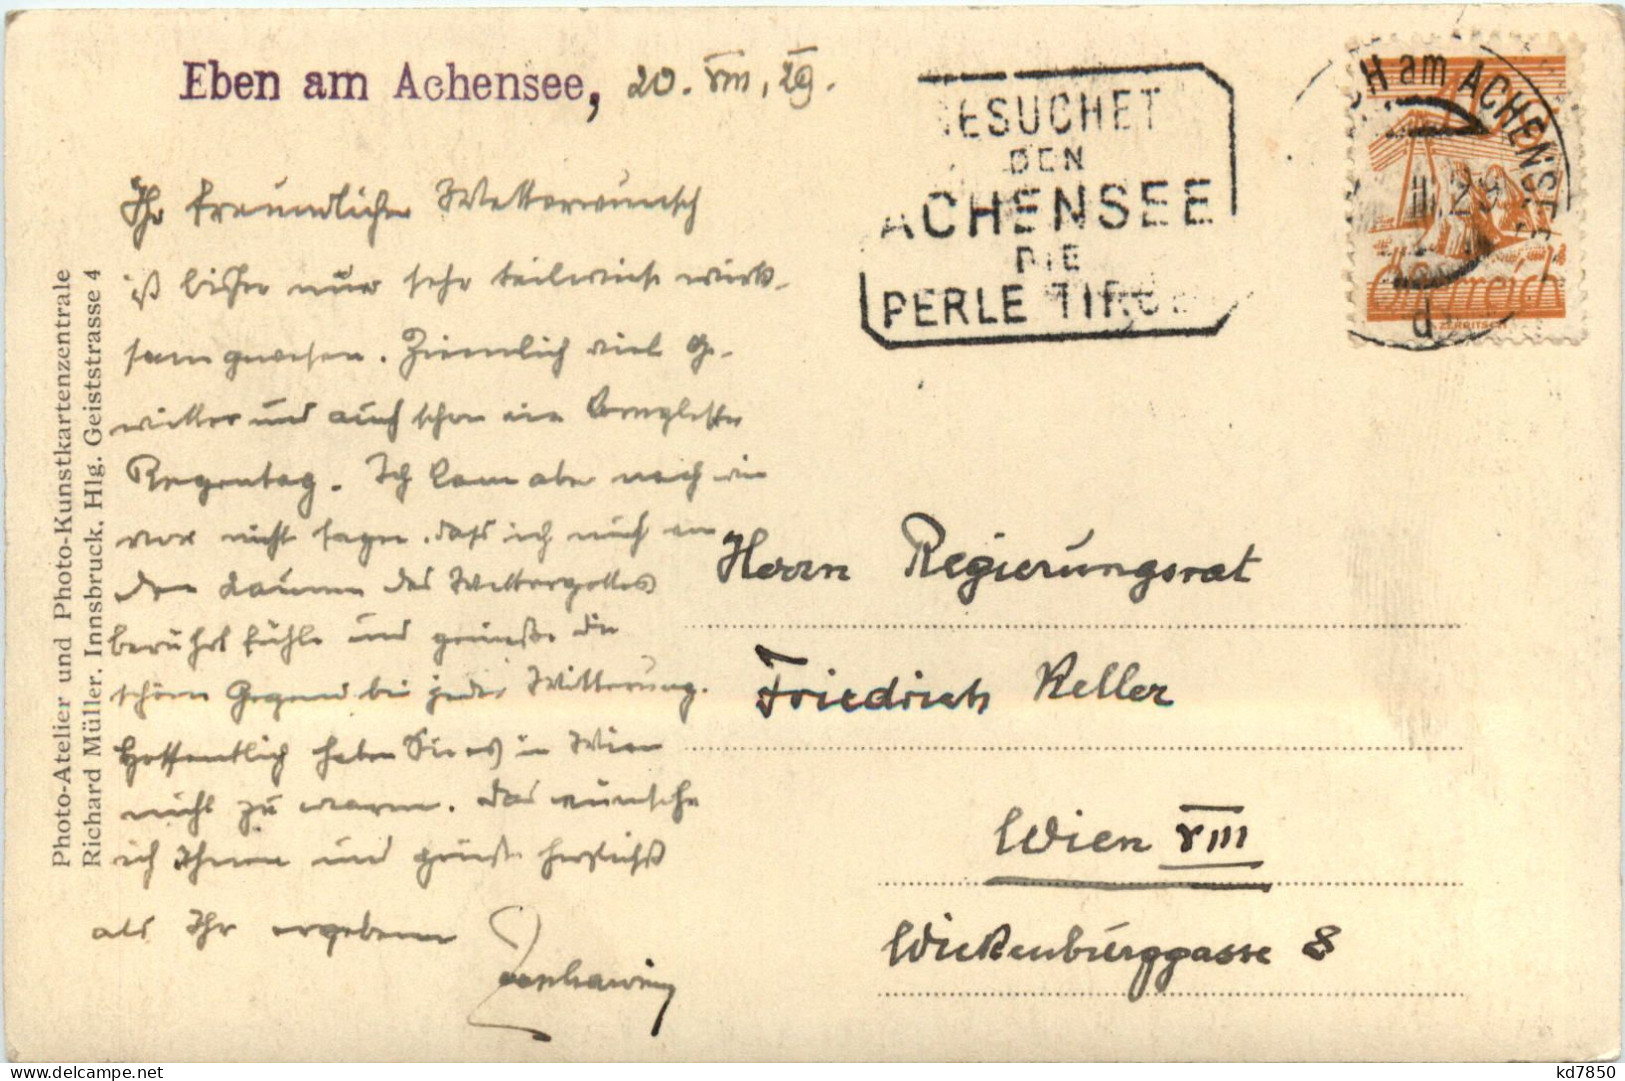 Eben am Achensee, 20. VIII. 29.
Ihr freundlicher Wetterwunsch
ist bisher nur sehr teilweise wirk-
sam gewesen. Ziemlich viel Ge-
witter und auch schon ein kompletter
Regentag. Ich kann aber nach wie
vor nicht sagen, dass ich mich von
den Launen des Wettergottes
berührt fühle und genieße die
schöne Gegend bei jeder Witterung.
Hoffentlich haben Sie es in Wien
nicht zu warm. Das wünsche
ich Ihnen und grüße herzlichst
als Ihr ergebener
Photo-Atelier und Photo-Kunstkartenzentrale
Richard Müller, Innsbruck, Hlg. Geiststrasse 4
BESUCHET
DEN
ACHENSEE
DIE
PERLE TIROLS
H am ACHENSEE
II.29
d
Österreich
Herrn Regierungsrat
Friedrich Keller
Wien VIII
Wickenburggasse 8
kd7850